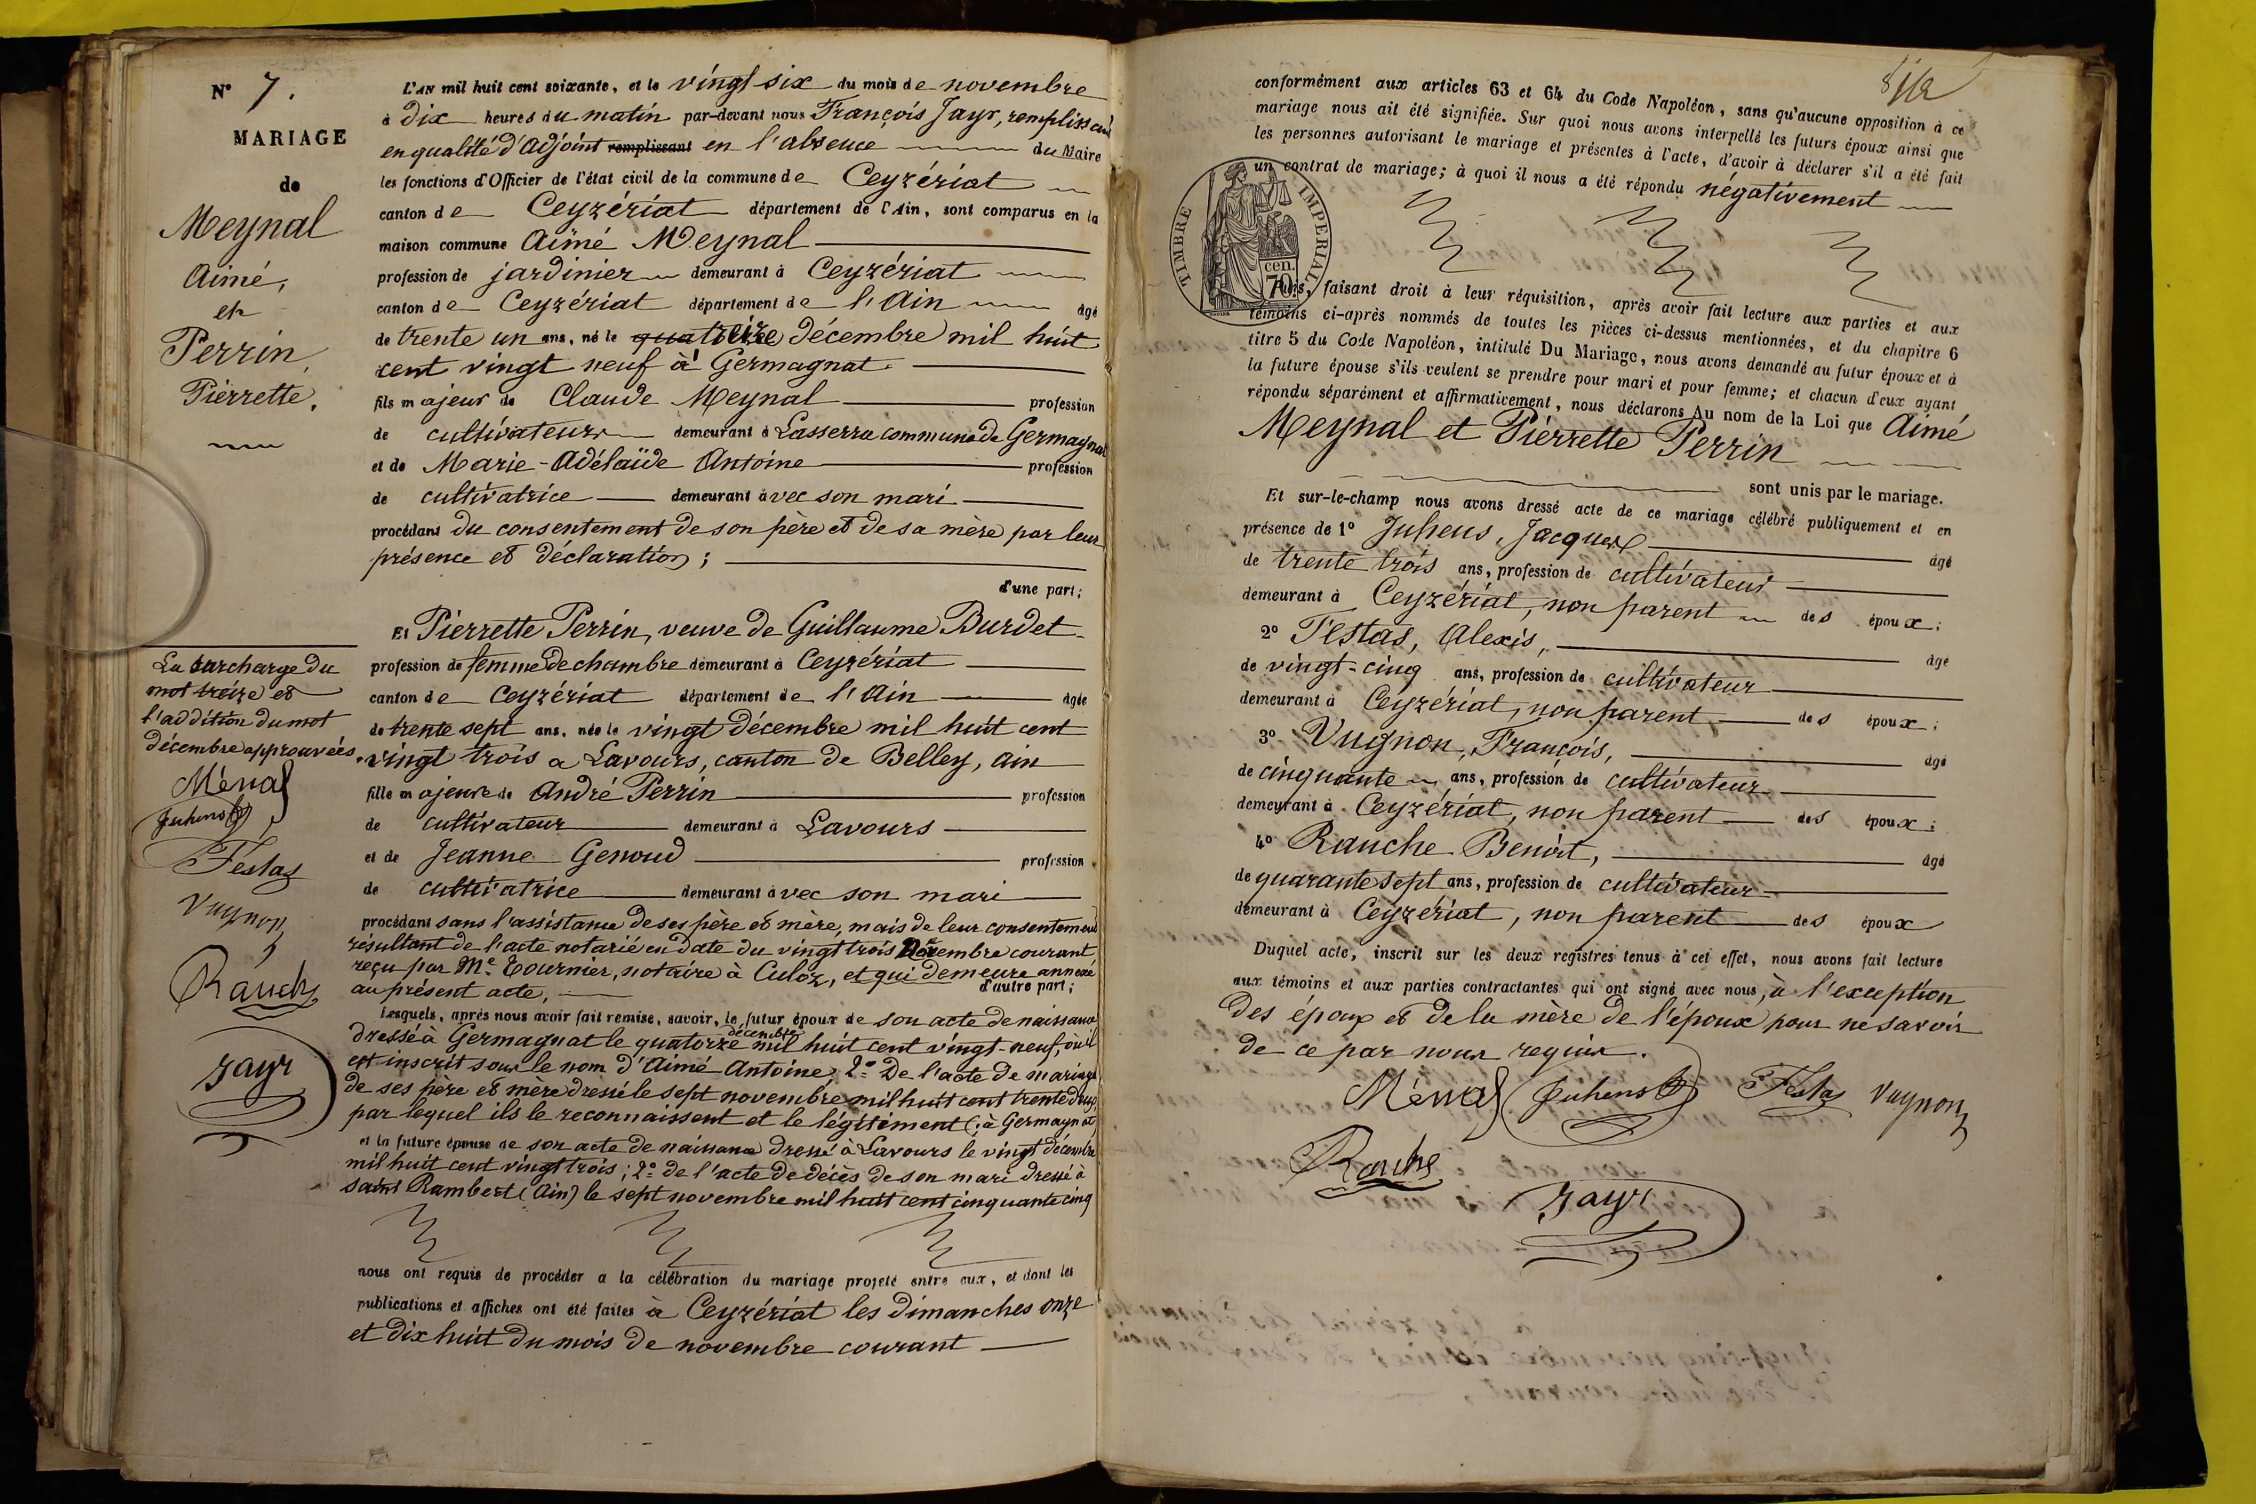 N° 7.
MARIAGE
de
Meynal
Aimé,
et
Perrin,
Pierrette.
La surcharge du
mot treize et
l'addition du mot
décembre approuvées.
Ménal
Juhens
Testas
Vugnon
Rauche
Jayr
L'AN mil huit cent soixante, et le vingt-six du mois de novembre
à dix heures du matin par-devant nous François Jayr, remplissant
en qualité d'adjoint remplissant en l'absence du Maire
les fonctions d'Officier de l'état civil de la commune de Ceyzériat
canton de Ceyzériat département de l'Ain, sont comparus en la
maison commune Aimé Meynal
profession de jardinier demeurant à Ceyzériat
canton de Ceyzériat département de l'Ain âgé
de trente un ans, né le treize décembre mil huit
cent vingt neuf à Germagnat
fils majeur de Claude Meynal profession
de cultivateur demeurant à Lasserra commune de Germagnat
et de Marie-Adélaïde Antoine profession
de cultivatrice demeurant avec son mari
procédant du consentement de son père et de sa mère par leur
présence et déclaration;
d'une part;
Et Pierrette Perrin, veuve de Guillaume Burdet
profession de femme de chambre demeurant à Ceyzériat
canton de Ceyzériat département de l'Ain âgée
de trente sept ans, née le vingt décembre mil huit cent
vingt trois à Lavours, canton de Belley, Ain
fille majeure de André Perrin profession
de cultivateur demeurant à Lavours
et de Jeanne Genoud profession
de cultivatrice demeurant avec son mari
procédant sans l'assistance de ses père et mère, mais de leur consentement
résultant de l'acte notarié en date du vingt trois Novembre courant,
reçu par Me. Tournier, notaire à Culoz, et qui demeure annexé
au présent acte, d'autre part;
Lesquels, après nous avoir fait remise, savoir, le futur époux de son acte de naissance
dressé à Germagnat le quatorze décembre mil huit cent vingt-neuf, où il
est inscrit sous le nom d'Aimé Antoine; 2° De l'acte de mariage
de ses père et mère dressé le sept novembre mil huit cent trente deux
par lequel ils le reconnaissent et le légitiment (à Germagnat
et la future épouse de son acte de naissance dressé à Lavours le vingt décembre
mil huit cent vingt trois; 2° de l'acte de décès de son mari dressé à
Saint Rambert (Ain) le sept novembre mil huit cent cinquante cinq
nous ont requis de procéder à la célébration du mariage projeté entre eux, et dont les
publications et affiches ont été faites à Ceyzériat les dimanches onze
et dix huit du mois de novembre courant
conformément aux articles 63 et 64 du Code Napoléon, sans qu'aucune opposition à ce
mariage nous ait été signifiée. Sur quoi nous avons interpellé les futurs époux ainsi que
les personnes autorisant le mariage et présentes à l'acte, d'avoir à déclarer s'il a été fait
un contrat de mariage; à quoi il nous a été répondu négativement
TIMBRE IMPERIAL
70 cen.
Puis, faisant droit à leur réquisition, après avoir fait lecture aux parties et aux
témoins ci-après nommés de toutes les pièces ci-dessus mentionnées, et du chapitre 6
titre 5 du Code Napoléon, intitulé Du Mariage, nous avons demandé au futur époux et à
la future épouse s'ils veulent se prendre pour mari et pour femme; et chacun d'eux ayant
répondu séparément et affirmativement, nous déclarons Au nom de la Loi que Aimé
Meynal et Pierrette Perrin
sont unis par le mariage.
Et sur-le-champ nous avons dressé acte de ce mariage célébré publiquement et en
présence de 1° Juhens, Jacques âgé
de trente trois ans, profession de cultivateur
demeurant à Ceyzériat, non parent des époux;
2° Testas, Alexis, âgé
de vingt-cinq ans, profession de cultivateur
demeurant à Ceyzériat, non parent des époux;
3° Vugnon, François, âgé
de cinquante ans, profession de cultivateur
demeurant à Ceyzériat, non parent des époux;
4° Rauche Benoît, âgé
de quarante sept ans, profession de cultivateur
demeurant à Ceyzériat, non parent des époux
Duquel acte, inscrit sur les deux registres tenus à cet effet, nous avons fait lecture
aux témoins et aux parties contractantes qui ont signé avec nous, à l'exception
des époux et de la mère de l'époux pour ne savoir
de ce par nous requis.
Ménal Juhens Testas Vugnon
Rauche
Jayr